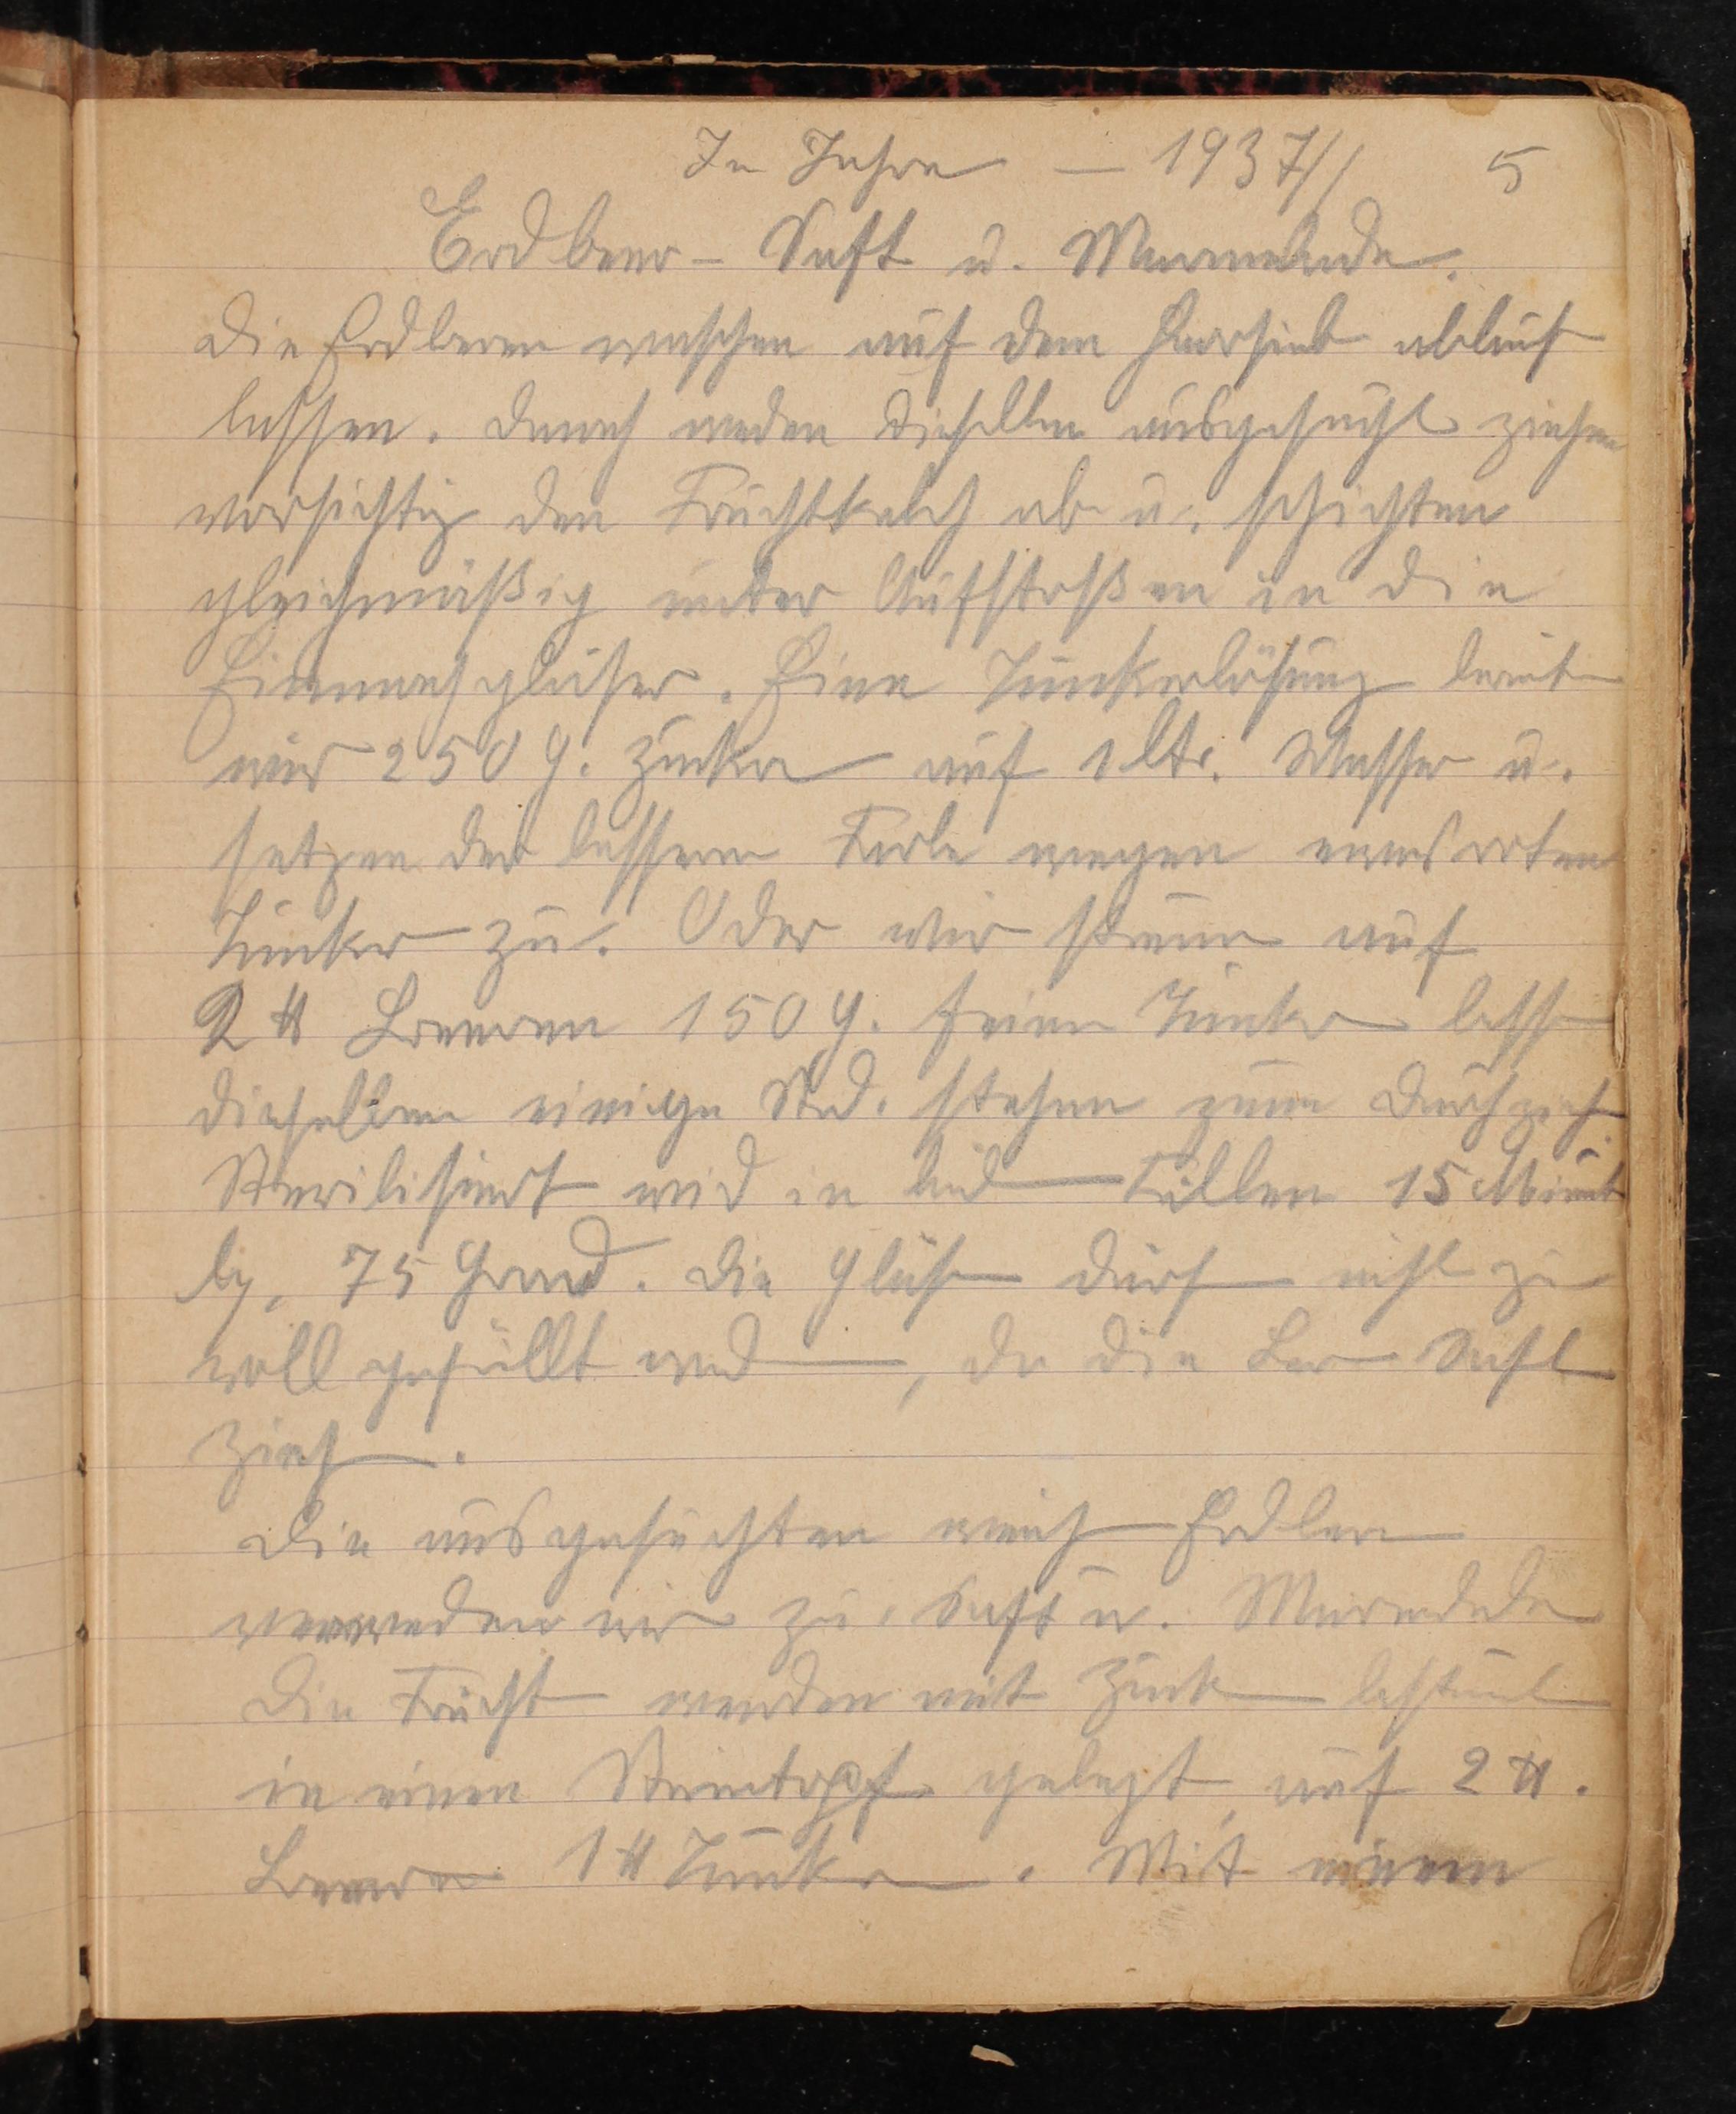 In Jahre — 1937// 5
Erdbeer- Saft u. Marmelade.
Die Erdberen waschen auf dem Haarsieb ablauf
lassen. Danach werden dieselben ausgesucht ziehen
vorsichtig den Fruchtkelch ab u. schichten
gleichmäßig unter Aufstoßen in die
Einmachgläser. Eine Zuckerlösung bereite
wir 250 g. Zucker auf 1 ltr. Wasser u.
setzen der bessern Farbe wegen etwas roten
Zucker zu. Oder wir streuen auf
2 ℔ Beeren 150 g. feinen Zucker lasse
dieselben einige Std. stehen zum Durchzieh.
Sterilisiert wird in beid Fällen 15 Minut
by, 75 Grad. Die Gläser dürf nicht zu
voll gefüllt werd, da die Beer Saft
zieh.
Die ausgesuchten weich Erdbeer
verwenden wir zu Saft u. Marmelade
Die Frücht werden mit Zuck bestreut
in einen Steintopf gelegt, auf 2 ℔.
Beeren 1 ℔ Zucker. Mit einem